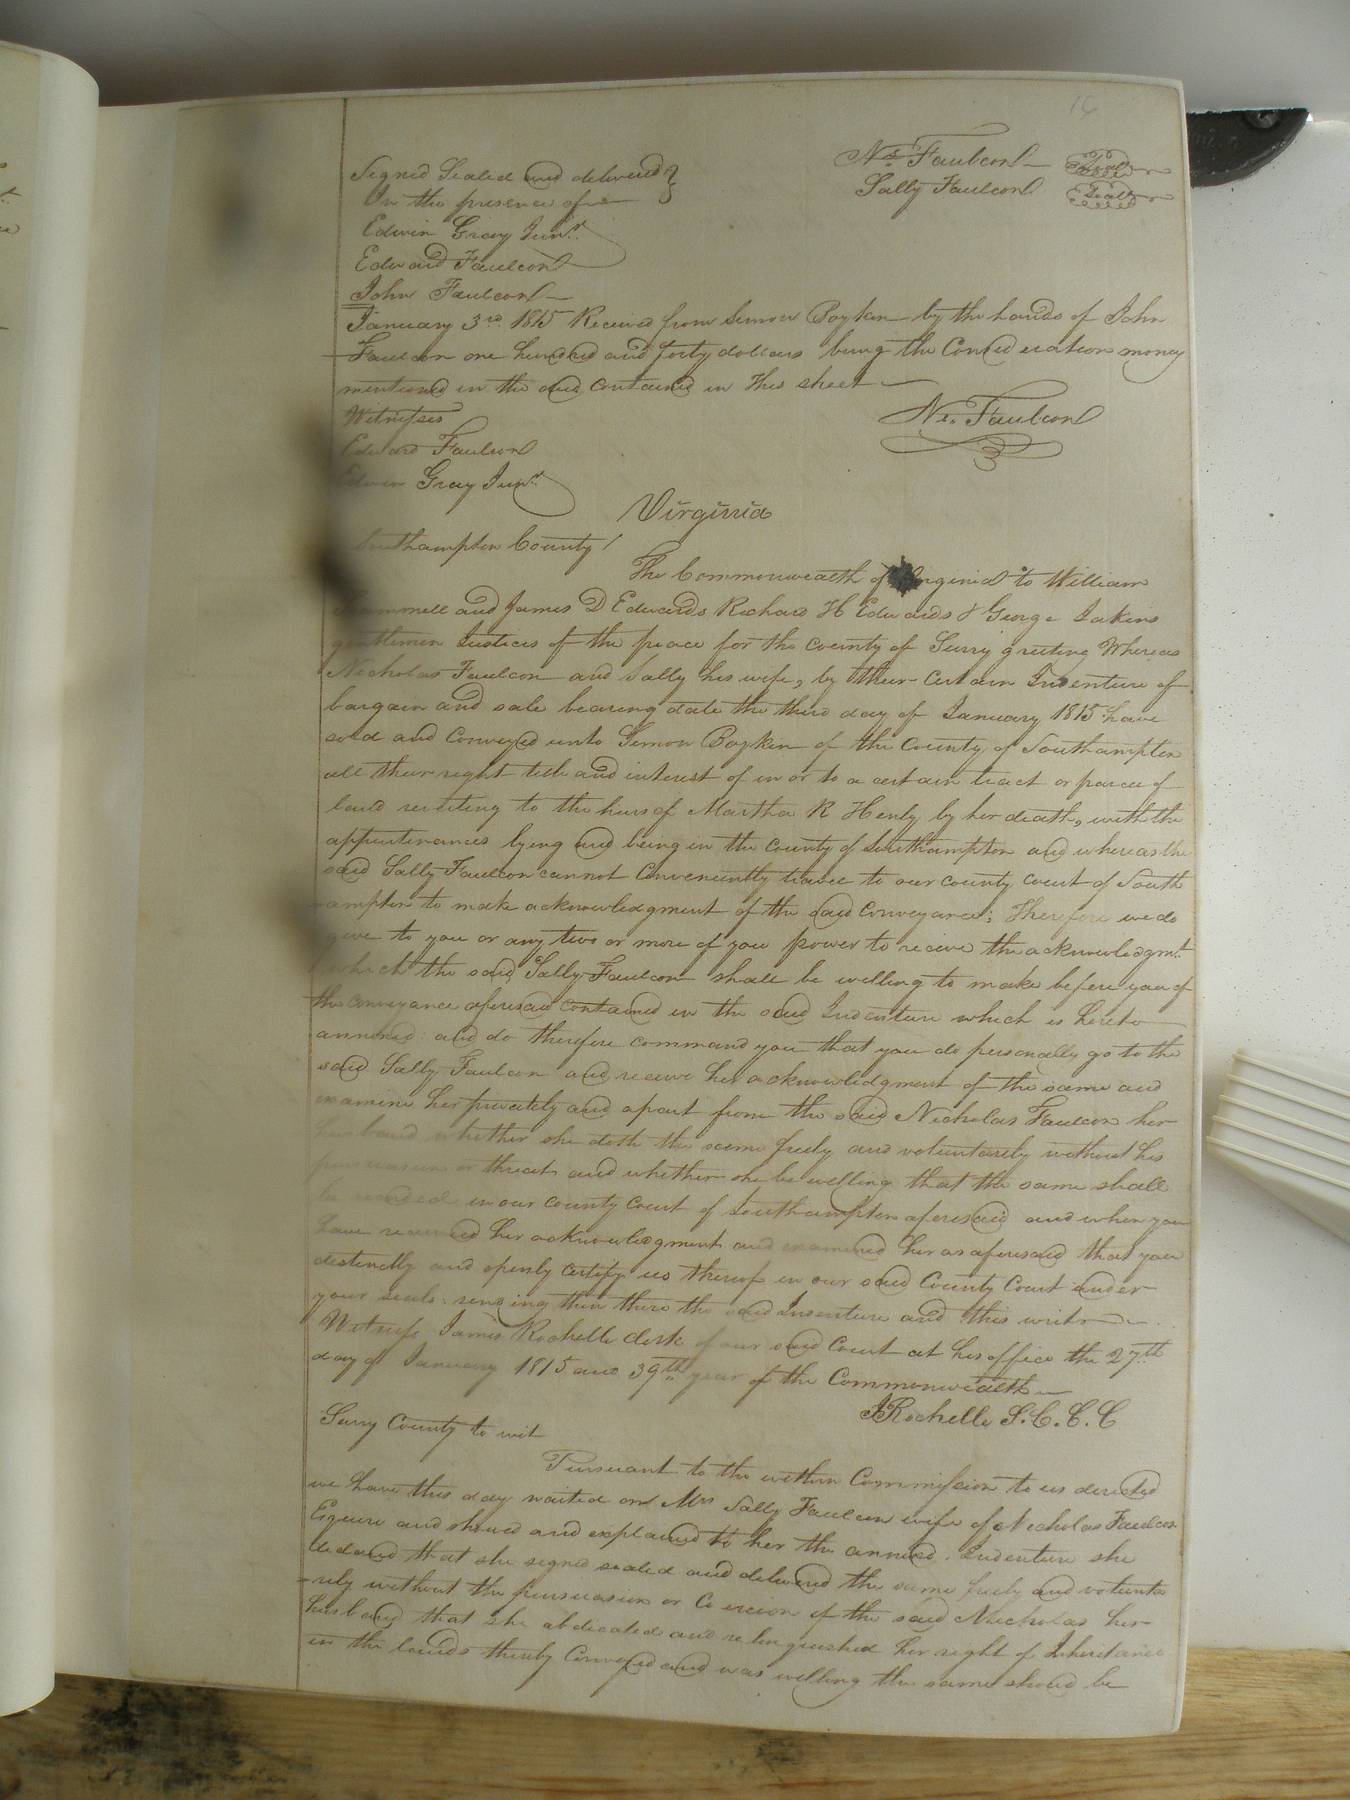 16
Ns. Faulcon Seal
Signed Sealed and delivered
Sally Faulcon Seal
In the presence of
Edwin Gray Junr.
Edward Faulcon
John Faulcon
January 3rd 1815 Received from Simon Boykin by the hands of John
Faulcon one hundred and forty dollars being the Consideration money
mentioned in the deed contained in this sheet
Witnesses Ns. Faulcon
Edward Faulcon
Edwin Gray Junr.
Virginia
Southampton County
The Commonwealth of Virginia to William
and James D Edwards Richard H Edwards & George
gentlemen Justices of the peace for the county of Surry greeting Whereas
Nicholas Faulcon and Sally his wife, by their certain Indenture of
bargain and sale bearing date the third day of January 1815 have
sold and conveyed unto Simon Boykin of the County of Southampton
all their right title and interest of in or to a certain tract or parcel of
land to the heirs of Martha R Henly by her death, with the
appurtenances lying and being in the county of Southampton and whereas the
said Sally Faulcon cannot Conveniently travel to our county court of South
ampton to make acknowledgment of the said Conveyance; Therefore we do
give to you or any two or more of you power to receive the acknowledgmt.
which the said Sally Faulcon shall be willing to make before you of
the conveyance aforesaid contained in the said Indenture which is hereto
annexed and do therefore command you that you do personally go to the
said Sally Faulcon and receive her acknowledgment of the same and
examine her privately and apart from the said Nicholas Faulcon her
husband whether she doth the same freely and voluntarily without his
persuasion or threats and whether she be willing that the same shall
be recorded in our county court of Southampton aforesaid and when you
have received her acknowledgment and examined her as aforesaid that you
distinctly and openly certify us thereof in our said County Court under
your seals sending then there the said Indenture and this writ
Witness James Rochelle clerk of our said Court at his office the 27th
day of January 1815 and 39th year of the Commonwealth
J Rochelle S.C.C.C
Surry County to wit
Pursuant to the within Commission to us directed
we have this day waited on Mrs Sally Faulcon wife of Nicholas Faulcon
Esquire and shewed and explained to her the annexed Indenture she
declared that she signed sealed and delivered the same freely and volunta
-rily without the persuasion or Coercion of the said Nicholas her
husband that she abdicated and relinquished her right of Inheritance
in the lands thereby Conveyed and was willing the same should be